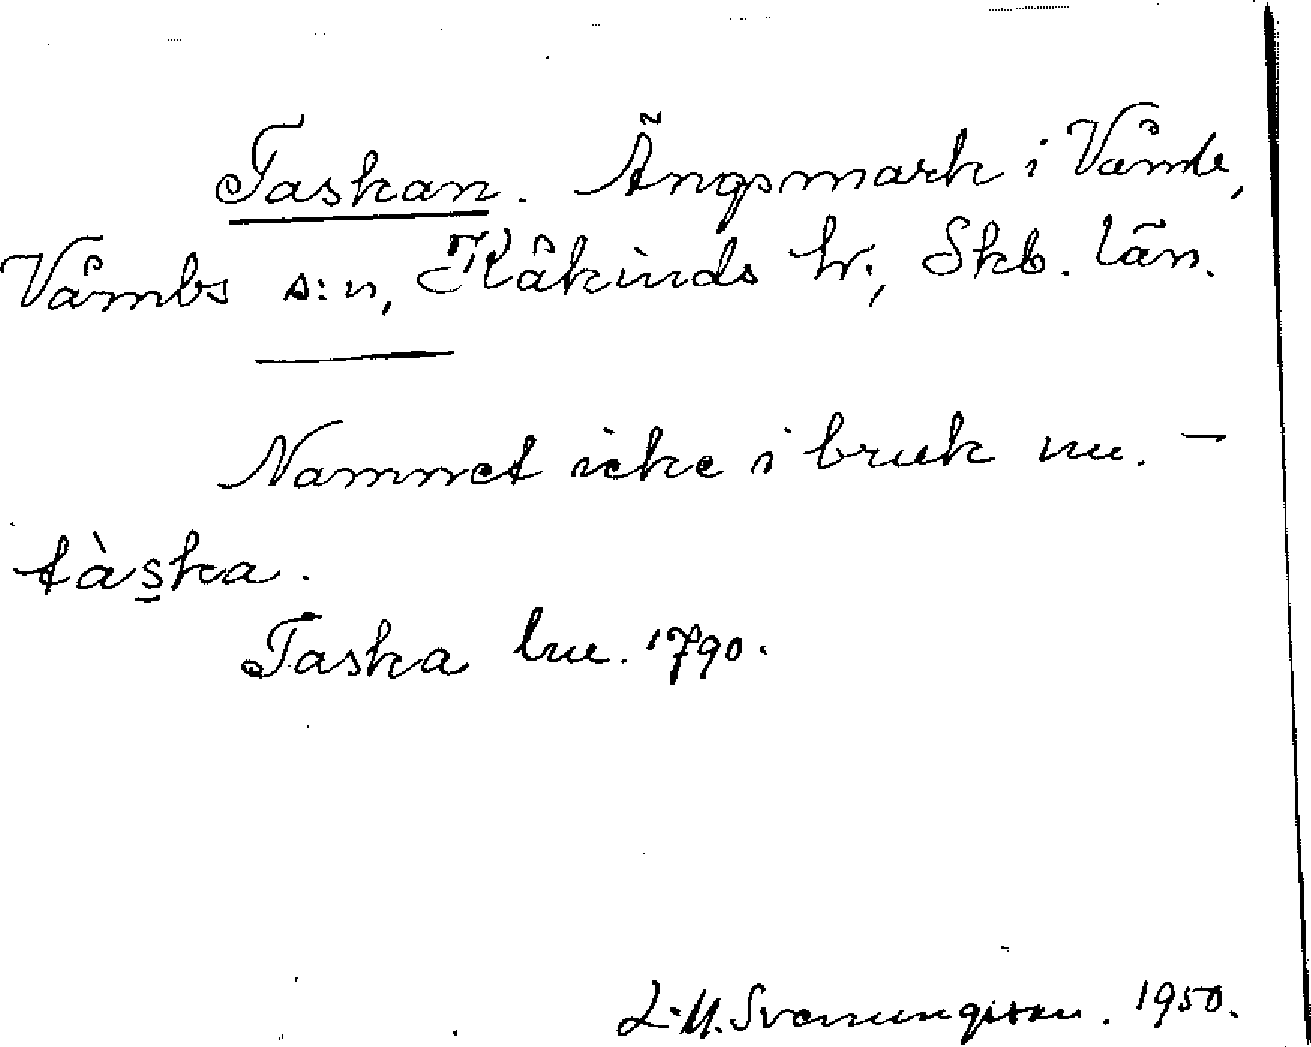 Taskan. Ängsmark i Våmb,
Våmbs s:n, Kåkinds hr; Skb. län.
Namnet icke i bruk nu. –
tàs̲ka.
Taska lm. 1790.
L.M. Svenungsson. 1950.